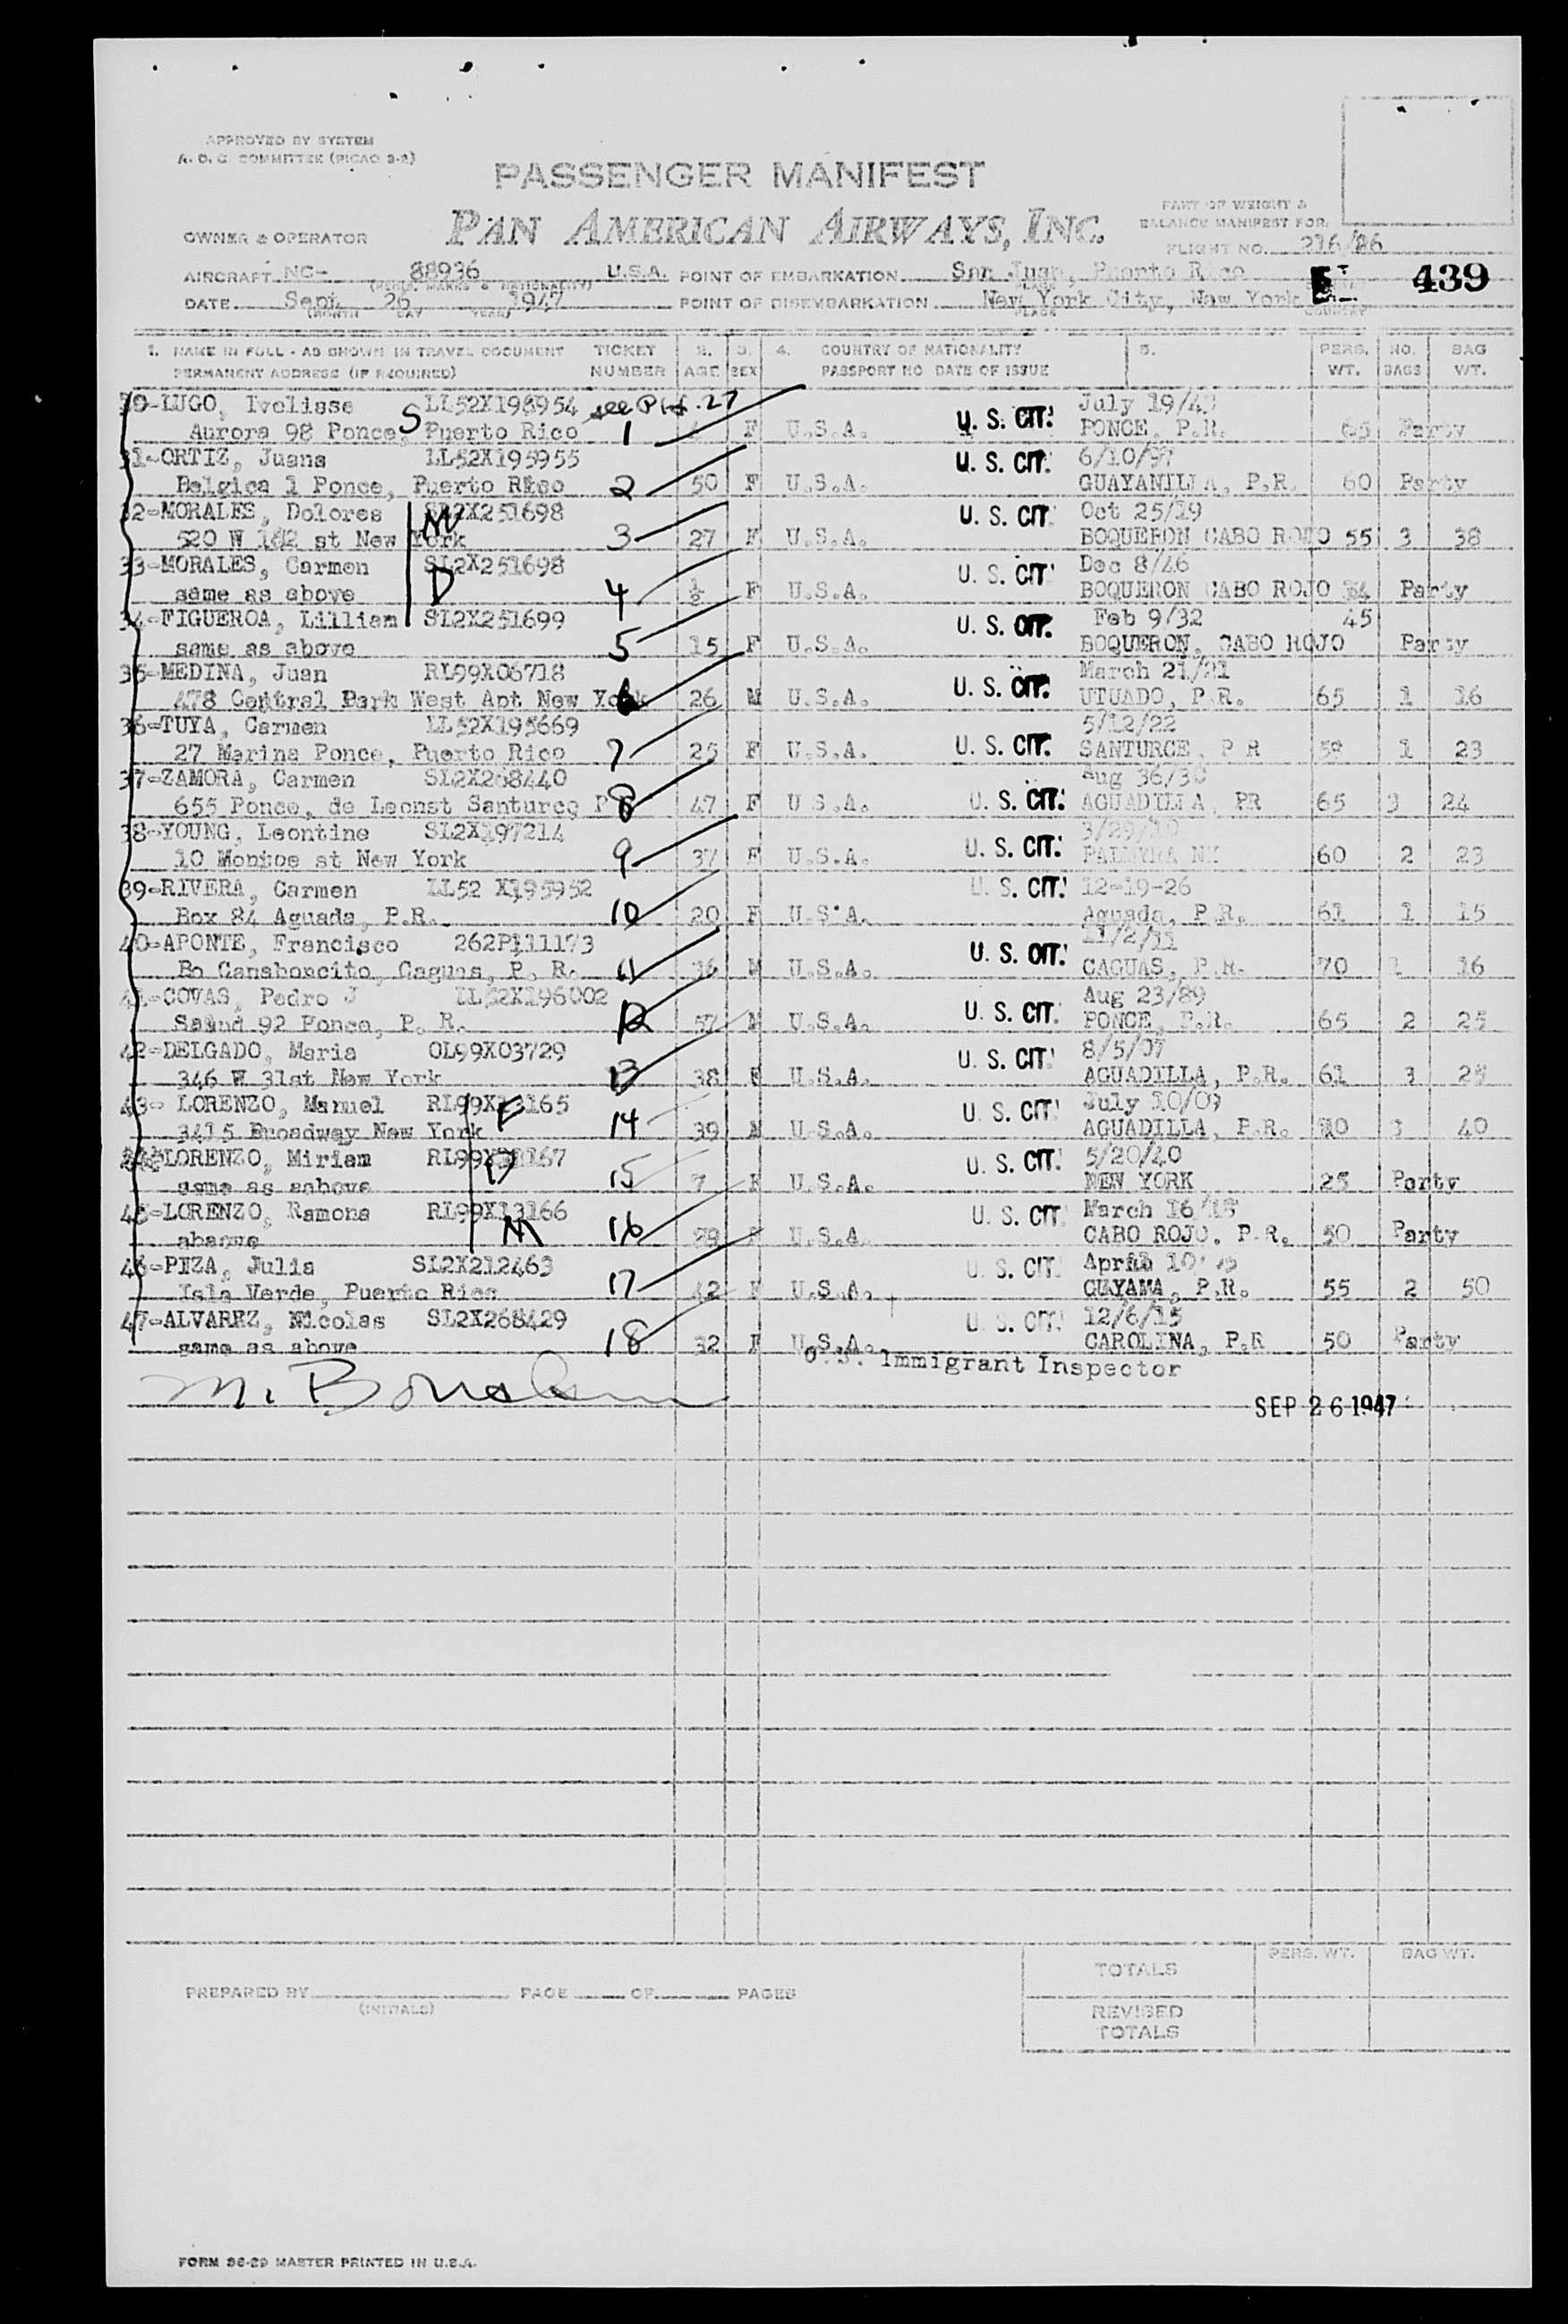 APPROVED BY SYSTEM
A. O. C. COMMITTEE (PICAO 2-2)
PASSENGER MANIFEST
PAN AMERICAN AIRWAYS, INC.
PART OF WEIGHT &
BALANCE MANIFEST FOR:
OWNER & OPERATOR
FLIGHT NO. 216/26
AIRCRAFT NC- 88936 U.S.A. POINT OF EMBARKATION San Juan, Puerto Rico
439
DATE Sept. 26 1947 POINT OF DISEMBARKATION New York City, New York
(MONTH DAY YEAR) PLACE COUNTRY
1. NAME IN FULL - AS SHOWN IN TRAVEL DOCUMENT TICKET 2. 3. 4. COUNTRY OF NATIONALITY 5. PERS. NO. BAG
PERMANENT ADDRESS (IF REQUIRED) NUMBER AGE SEX PASSPORT NO DATE OF ISSUE WT. BAGS WT.
30-LUGO, Ivelisse LL52X195954 see P 27 U. S. CIT. July 19/
Aurora 98 Ponce, Puerto Rico S 1 F U.S.A. PONCE, P.R. Party
31-ORTIZ, Juana LL52X195955 U. S. CIT. 6/10/97
Belgica 1 Ponce, Puerto Rico 2 50 F U.S.A. GUAYANILLA, P.R. 60 Party
32-MORALES, Dolores SL2X251698 M U. S. CIT. Oct 25/19
520 W 182 st New York 3 27 F U.S.A. BOQUERON CABO ROJO 55 3 38
33-MORALES, Carmen SL2X251698 D U. S. CIT. Dec 8/46
same as above 4 ½ F U.S.A. BOQUERON CABO ROJO Party
34-FIGUEROA, Lilliam SL2X251699 U. S. CIT. Feb 9/32 45
same as above 5 15 F U.S.A. BOQUERON, CABO ROJO Party
35-MEDINA, Juan RL99X06718 U. S. CIT. March 21/21
478 Central Park West Apt New York 6 26 M U.S.A. UTUADO, P.R. 65 1 16
36-TUYA, Carmen LL52X195669 U. S. CIT. 5/12/22
27 Marina Ponce, Puerto Rico 7 25 F U.S.A. SANTURCE, P R 1 23
37-ZAMORA, Carmen SL2X268440 U. S. CIT. Aug
655 Ponce, de Leonst Santurce P R 8 47 F U S.A. AGUADILLA, PR 65 3 24
38-YOUNG, Leontine SL2X197214 U. S. CIT. 3/29/10
10 Monroe st New York 9 37 F U.S.A. PALMYRA 60 2 23
39-RIVERA, Carmen LL52 X195952 U. S. CIT. 12-19-26
Box 84 Aguada, P.R. 10 20 F U.S.A. Aguada, P.R. 61 1 15
40-APONTE, Francisco 262P111173 U. S. CIT. 11/2/11
Bo Canaboncito, Caguas, P. R. 11 36 M U.S.A. CAGUAS, P.R. 70 1 16
41-COVAS, Pedro J LL52X196002 U. S. CIT. Aug 23/89
Salud 92 Ponce, P. R. 12 57 M U.S.A. PONCE, P.R. 65 2 25
42-DELGADO, Maria OL99X03729 U. S. CIT. 8/5/07
346 W 31st New York 13 38 F U.S.A. AGUADILLA, P.R. 61 3 25
43- LORENZO, Manuel RL99X13165 F U. S. CIT. July 10/07
3415 Broadway New York 14 39 M U.S.A. AGUADILLA, P.R. 3 40
LORENZO, Miriam RL99X13167 D U. S. CIT. 5/20/40
same as aabove 15 7 F U.S.A. NEW YORK 25 Party
45-LORENZO, Ramona RL99X13166 M U. S. CIT. March 16/18
16 F U.S.A. CABO ROJO. P.R. 50 Party
46-PIZA, Julia SL2X212463 U. S. CIT. 10
Isla Verde, Puerto Rico 17 42 F U.S.A. GUAYAMA, P.R. 55 2 50
47-ALVAREZ, Nicolas SL2X268429 U. S. CIT. 12/6/15
same as above 18 32 F U.S.A. CAROLINA, P.R 50 Party
U. S. Immigrant Inspector
SEP 26 1947
TOTALS PERS. WT. BAG WT.
PREPARED BY PAGE OF PAGES
(INITIALS)
REVISED
TOTALS
FORM 36-29 MASTER PRINTED IN U.S.A.